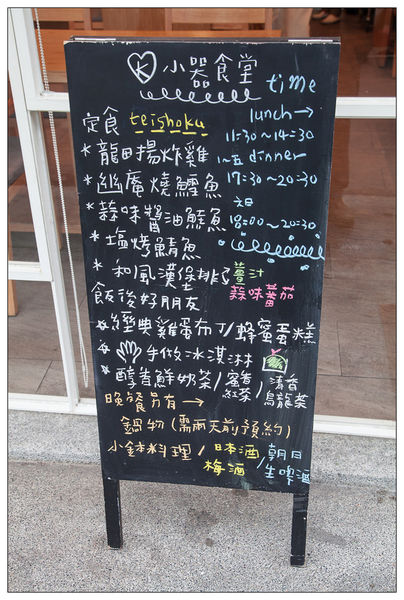 K 小器食堂
time
定食 teishoku
lunch→
11:30~14:30
*龍田揚炸雞
一~五 dinner
17:30~20:30
*幽庵燒鱈魚
六日
*蒜味醬油鮭魚
18:00~20:30
*塩烤鯖魚
*和風漢堡排 薑汁
蒜味蕃茄
飯後好朋友
經典雞蛋布丁/蜂蜜蛋糕
手做冰淇淋
醇香鮮奶茶/蜜香紅茶/清香烏龍茶
晚餐另有→
鍋物(需兩天前預約)
小鉢料理/日本酒/朝日
梅酒 生啤酒